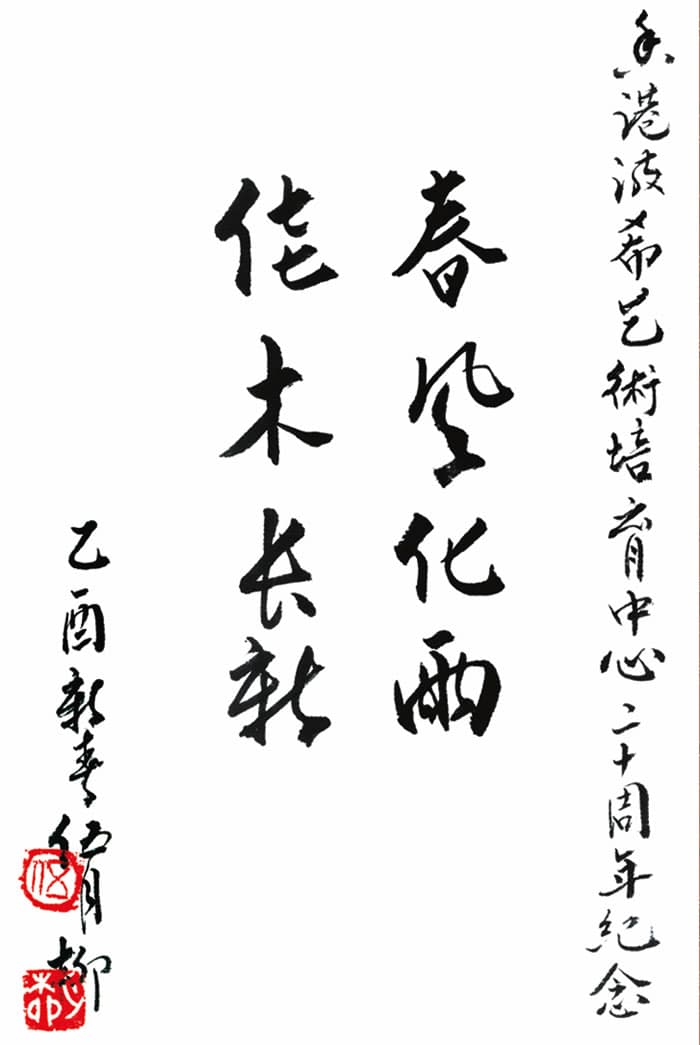 香港波希艺術培育中心二十周年紀念
春风化雨
佳木长新
乙酉新春伍月柳
伍